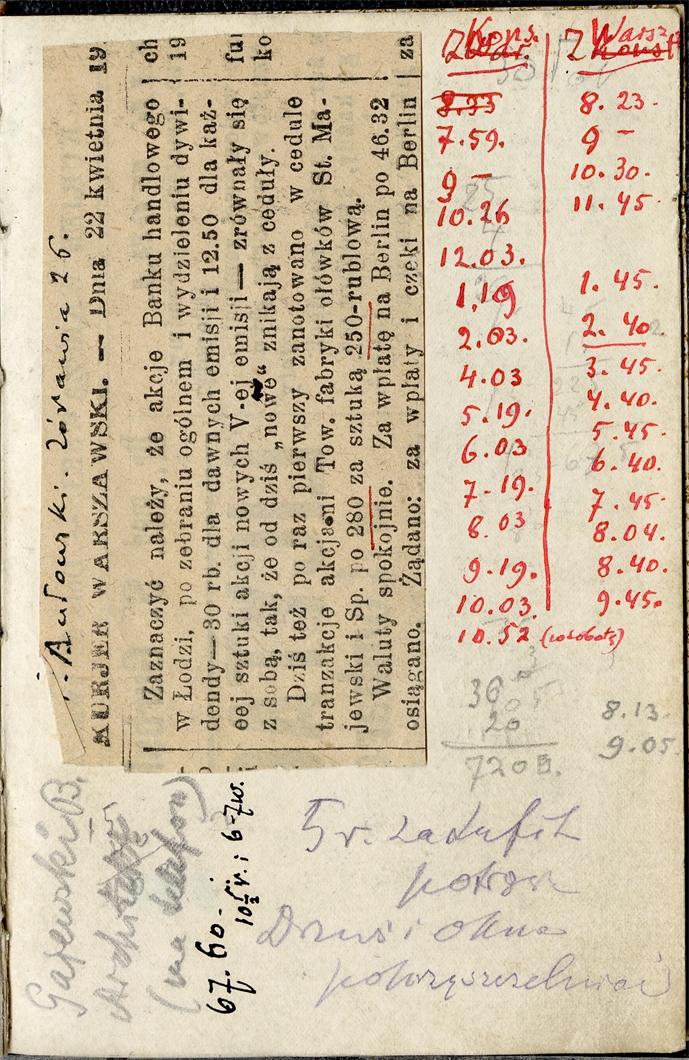 Żórawia 26.
KURJER WARSZAWSKI. — Dnia 22 kwietnia 19
Zaznaczyć należy, że akcje Banku handlowego
w Łodzi, po zebraniu ogólnem i wydzieleniu dywi-
dendy—30 rb. dla dawnych emisji i 12.50 dla każ-
eej sztuki akcji nowych V-ej emisji — zrównały się
z sobą, tak, że od dziś „nowe“ znikają z ceduły.
Dziś też po raz pierwszy zanotowano w cedule
tranzakcje akcjami Tow. fabryki ołówków St. Ma-
jewski i Sp. po 280 za sztukę 250-rublową.
Waluty spokojnie. Za wpłatę na Berlin po 46.32
osiągano. Żądano: za wpłaty i czeki na Berlin
ch
19
ful
ko
za
Z Kons.
8.35
7.59.
9 —
10.26
12.03.
1.19
2.03.
4.03
5.19.
6.03
7-19.
8.03
9.19.
10.03.
10.52 (w soboty)
Z Warsz
8.23.
9 —
10.30.
11.45
1.45.
2.40
3.45.
4.40.
5.45.
6.40.
7.45
8.04.
8.40.
9.45.
8.13.
9.05.
36
20
720
Gajewski B.
Architekt
(ma telefon)
67.60.
10½ r. i 6-7 w.
5 r.
Drzwi i okna